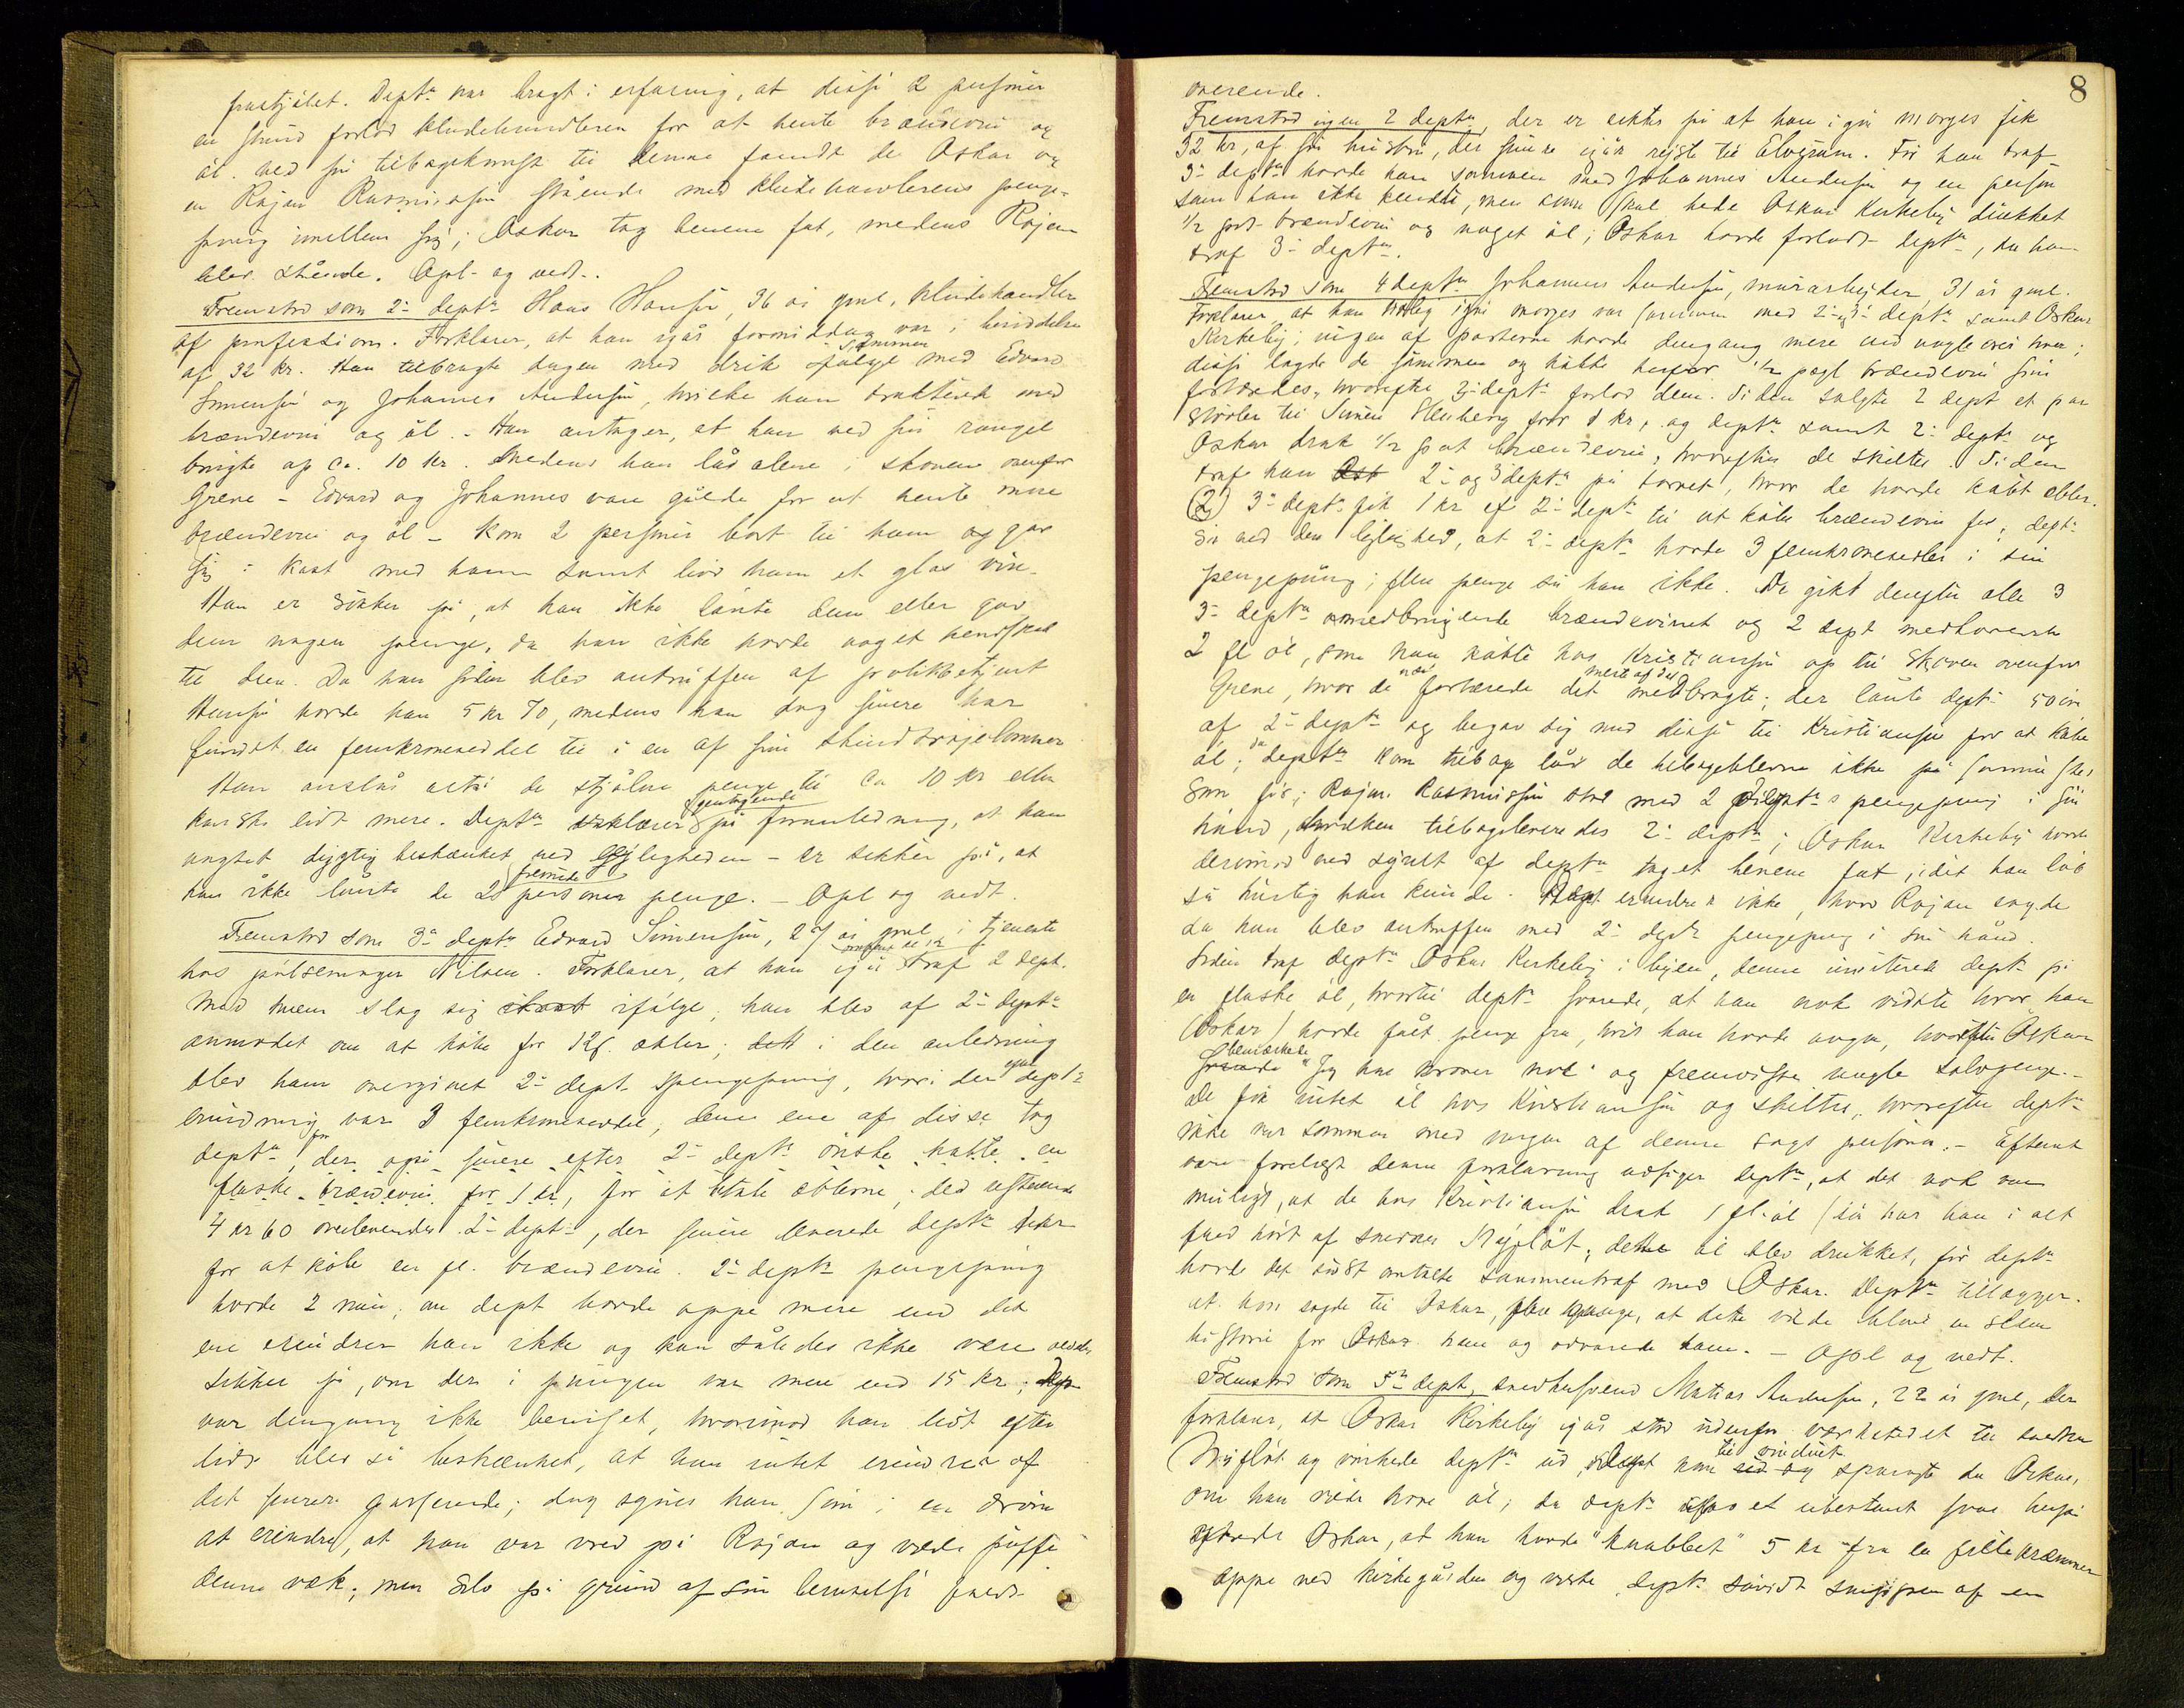 frastjålet. Deptn var bragt i erfaring, at disse 2 personer
en stund forlod kludehandleren for at hente brændevin og
øl. Ved sin tilbagekomst til denne fandt de Oskar og
en Røjan Rasmussen stående med kludehandlerens penge-
pung imellem sig; Oskar tog benene fat, medens Røjan
blev stående. Opl. og vedt.
Fremstod som 2- deptn Hans Hansen, 36 år gml, kludehandler
af profession. Forklarer, at han igår formiddag var i besiddelse
af 32 kr. Han tilbragte dagen med drik sammen med Edvard
Simensen og Johannes Andersen, hvilke han trakterede med
brændevin og øl. - Han antager, at han ved sin rangel
brugte op ca. 10 kr. Medens han lå alene i skoven ovenfor
Grene - Edvard og Johannes vare gåede for at hente mere
brændevin og øl - kom 2 personer bort til ham og gav
sig i kast med ham samt bød ham et glas vin.
Han er sikker på, at han ikke lånte dem eller gav
dem nogen penge, da han ikke havde noget kendskab
til dem. Da han siden blev antruffen af politibetjent
Hansen havde han 5 kr 70, medens han dog senere har
fundet en femkroneseddel til i en af sine skindtrøjelommer
Han anslår altså de stjålne penge til ca 10 kr eller
kanske lidt mere. Deptn forklarer gentagende på foranledning, at han
uagtet dygtig beskænket ved lejligheden - er sikker på, at
han ikke lånte de 2 fremede personer penge. - Opl og vedt.
Fremstod som 3- deptn Edvard Simensen, 27 år gml i tjeneste
hos pølsemager Nilsen. Forklarer, at han igår omtrent kl 12 traf 2 dept.
med hvem slog sig ifølge; han blev af 2- deptn
anmodet om at købe for 12 ß. æbler; i den anledning
blev ham overgivet 2- dept. pengepung, hvori der efter deptn
erindring var 3 femkronesedler; den ene af disse tog
deptn, der også senere efter 2- deptn ønske købte en
flaske brændevin for 1 kr, for at betale æblerne; det resterende
4 kr 60 overleveredes 2- deptn, der senere leverede deptn 1 kr
for at købe en fl. brændevin. 2- deptn pengepung
havde 2 rum; om dept havde oppe mere end det
ene erindrer han ikke og kan således ikke være aldeles
sikker på, om der i pungen var mere end 15 kr; Dept
var dengang ikke beruset, hvorimod han lidt efter
lidt blev så beskænket, at han intet erindrer af
det senere passerede; dog synes han som i en drøm
at erindre, at han var vred på Røjan og vilde puffe
denne væk; men selv på grund af sin beruselse faldt
8
overende.
Fremstod igen 2 deptn, der er sikker på at han igår morges fik
32 kr, af sin hustru, der senere igår rejste til Elverum. Før han traf
3- deptn havde han sammen med Johannes Andersen og en person
som han ikke kendte, men som skal hede Oskar Kirkeby drukket
1/2 pot brændevin og noget øl; Oskar havde forladt deptn, da han
traf 3- deptn.
Fremstod som 4 deptn Johannes Andersen, murarbejder, 31 år gml.
Forklarer, at han tidlig igår morges var sammen med 2- og 3- deptn samt Oskar
Kirkeby; ingen af parterne havde dengang mere end nogle ører hver;
disse lagde de sammen og købte herfor 1/2 pægl brændevin som
fortæredes, hvorefter 3- deptn forlod dem. Siden solgte 2 dept et par
støvler til Simen Stenberg for 1 kr, og deptn samt 2- deptn og
Oskar drak 1/2 pot brændevin, hvorefter de skiltes. Siden
traf han 2- og 3 deptn på torvet, hvor de havde købt æbler.
(2) 3- deptn fik 1 kr af 2- deptn til at købe brændevin for; deptn
så ved den lejlighed, at 2- deptn havde 3 femkronesedler i sin
pengepung; flere penge så han ikke. De gikk derefter alle 3
3- deptn medbringende brændevinet og 2 dept medhavende
2 fl øl, som han købte hos Kristiansen op til skoven ovenfor
Grene, hvor de fortærede det meste af det medbragte; der lånte deptn 50 øre
af 2- deptn og begav sig med disse til Kristiansen for at købe
øl; da deptn kom tilbage lå de tilbageblevne ikke på samme sted
som før; Røjan Rasmussen stod med 2 deptns pengepung i sin
hånd, hvilken tilbageleveredes 2- deptn; Oskar Kirkeby havde
derimod ved synet af deptn taget benene fat, idet han løb
så hurtig han kunde. Dept erindrer ikke, hvad Røjan sagde
da han blev antruffen med 2- deptn pengepung i sin hånd.
Siden traf deptn Oskar Kirkeby i byen, denne inviterede deptn på
en flaske øl, hvortil deptn svarede, at han nok vidste hvor han
(Oskar) havde fået penge fra, hvis han havde nogen, hvorefter Oskar
bemærkede "Jeg har kroner nok" og fremviste nogle sølvpenge. -
De fik intet øl hos Kristiansen og skiltes, hvorefter deptn
ikke var sammen med nogen af denne sags personer. - Efterat
være forelagt denne forklaring udsiger deptn, at det nok var
muligt, at de hos Kristiansen drak 1 fl. øl (så har han i alt
fald hørt af smeden Nyfløt; dette øl blev drukket, før deptn
havde det sidst omtalte sammentræf med Oskar. Deptn tillægger
at han sagde til Oskar, flere gange, at dette vilde blive en slem
historie for ham og advarede ham. - Opl og vedt.
Fremstod som 5- dept, snedkersvend Matias Andersen, 22 år gml, der
forklarer, at Oskar Kirkeby igår stod udenfor værkstedet til snedker
Nyfløt og vinkede deptn ud, dept kom til vinduet spurgte da Oskar,
om han vilde have øl; da deptn gav et ubestemt svar herpå
ytrede Oskar, at han havde "knabbet" 5 kr fra en fillekræmmer
oppe ved kirkegården og viste deptn såvidt snippen af en